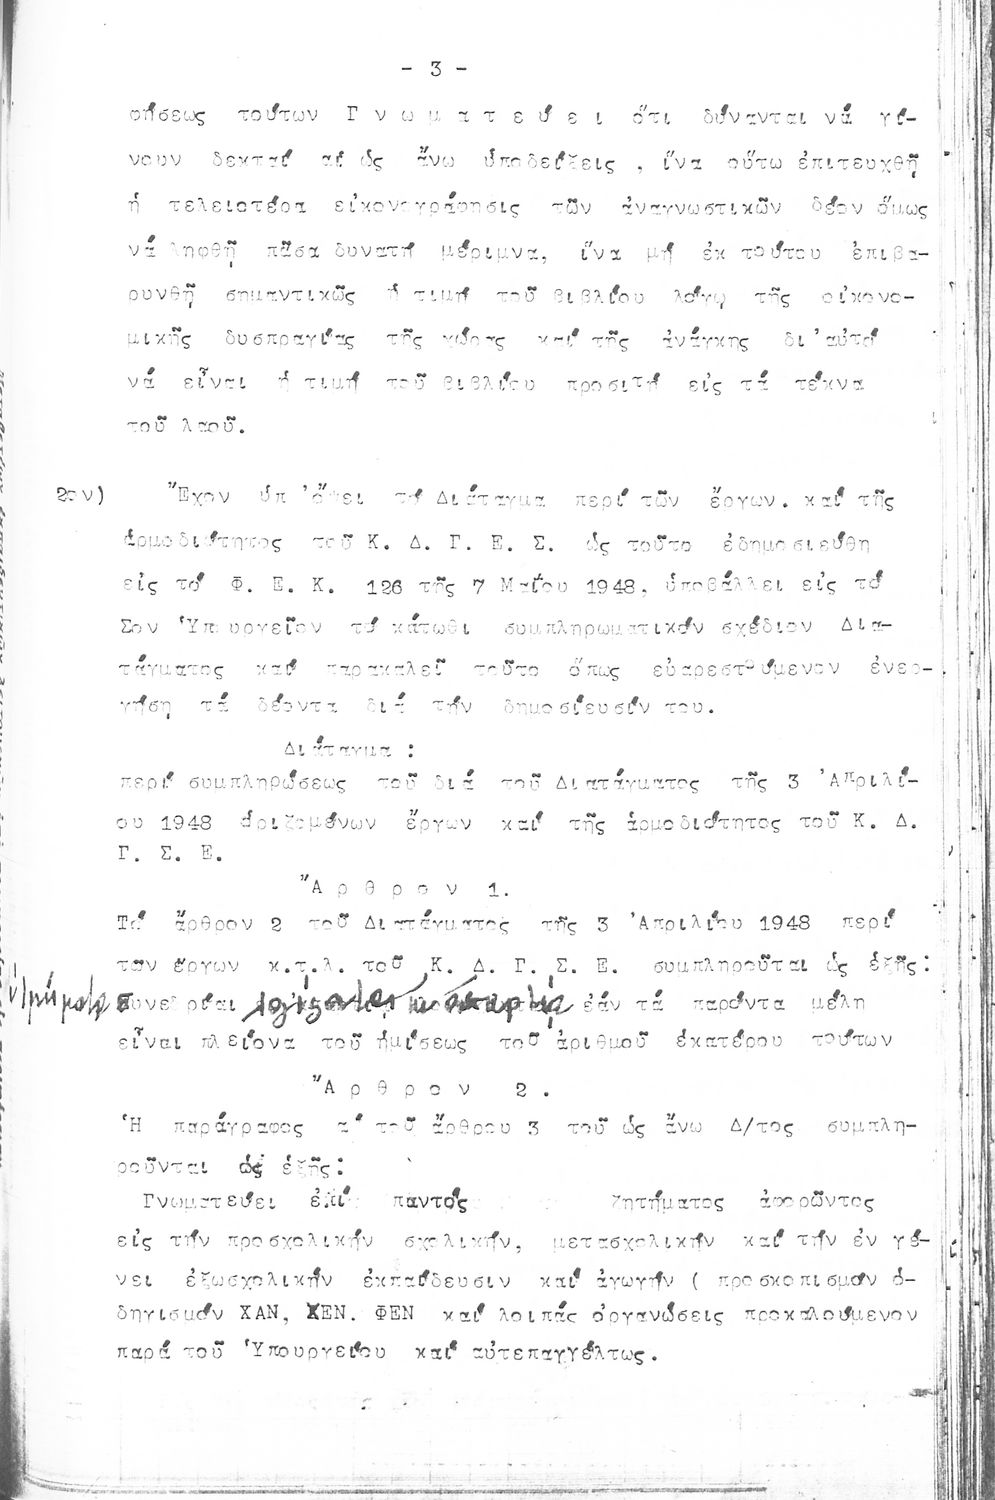 - 3 -
φήσεως τούτων Γ ν ω μ α τ ε ύ ε ι ὅτι δύνανται νά γί-
νουν δεκταί αἱ ὡς ἄνω ὑποδείξεις , ἵνα οὕτω ἐπιτευχθῇ
ἡ τελειοτέρα εἰκονογράφησις τῶν ἀναγνωστικῶν δέον ὅμως
νά ληφθῇ πᾶσα δυνατή μέριμνα, ἵνα μή ἐκ τούτου ἐπιβα-
ρυνθῇ σημαντικῶς ἡ τιμή τοῦ βιβλίου λόγῳ τῆς οἰκονο-
μικῆς δυσπραγίας τῆς χώρας καί τῆς ἀνάγκης δι'αὐτό
νά εἶναι ἡ τιμή τοῦ βιβλίου προσιτή εἰς τά τέκνα
τοῦ λαοῦ.
2ον) Ἔχον ὑπ 'ὄψει τό Διάταγμα περί τῶν ἔργων. καί τῆς
ἁρμοδιότητος τοῦ Κ. Δ. Γ. Ε. Σ. ὡς τοῦτο ἐδημοσιεύθη
εἰς τό Φ. Ε. Κ. 126 τῆς 7 Μαΐου 1948, ὑποβάλλει εἰς τό
Σον Ὑπουργεῖον τό κάτωθι συμπληρωματικόν σχέδιον Δια-
τάγματος καί παρακαλεῖ τοῦτο ὅπως εὐαρεστούμενον ἐνερ-
γήσῃ τά δέοντα διά τήν δημοσίευσίν του.
Διάταγμα :
περί συμπληρώσεως τοῦ διά τοῦ Διατάγματος τῆς 3 Ἀπριλί-
ου 1948 ὁριζομένων ἔργων καί τῆς ἁρμοδιότητος τοῦ Κ. Δ.
Γ. Σ. Ε.
Ἄ ρ θ ρ ο ν 1.
Τό ἄρθρον 2 τοῦ Διατάγματος τῆς 3 Ἀπριλίου 1948 περί
των ἔργων κ.τ.λ. τοῦ Κ. Δ. Γ. Σ. Ε. συμπληροῦται ὡς ἑξῆς:
συνεδρίαι ἐάν τά παρόντα μέλη
εἶναι πλείονα τοῦ ἡμίσεως τοῦ ἀριθμοῦ ἑκατέρου τούτων
Ἄ ρ θ ρ ο ν 2 .
Ἡ παράγραφος α' τοῦ ἄρθρου 3 τοῦ ὡς ἄνω Δ/τος συμπλη-
ροῦνται ὡς ἑξῆς:
Γνωματεύει ἐπί παντός ζητήματος ἀφορῶντος
εἰς τήν προσχολικήν σχολικήν, μετασχολικήν καί τήν ἐν γέ-
νει ἐξωσχολικήν ἐκπαίδευσιν καί ἀγωγήν ( προσκοπισμόν ὁ-
δηγισμόν ΧΑΝ, ΧΕΝ. ΦΕΝ καί λοιπάς ὀργανώσεις προκαλούμενον
παρά τοῦ Ὑπουργείου καί αὐτεπαγγέλτως.